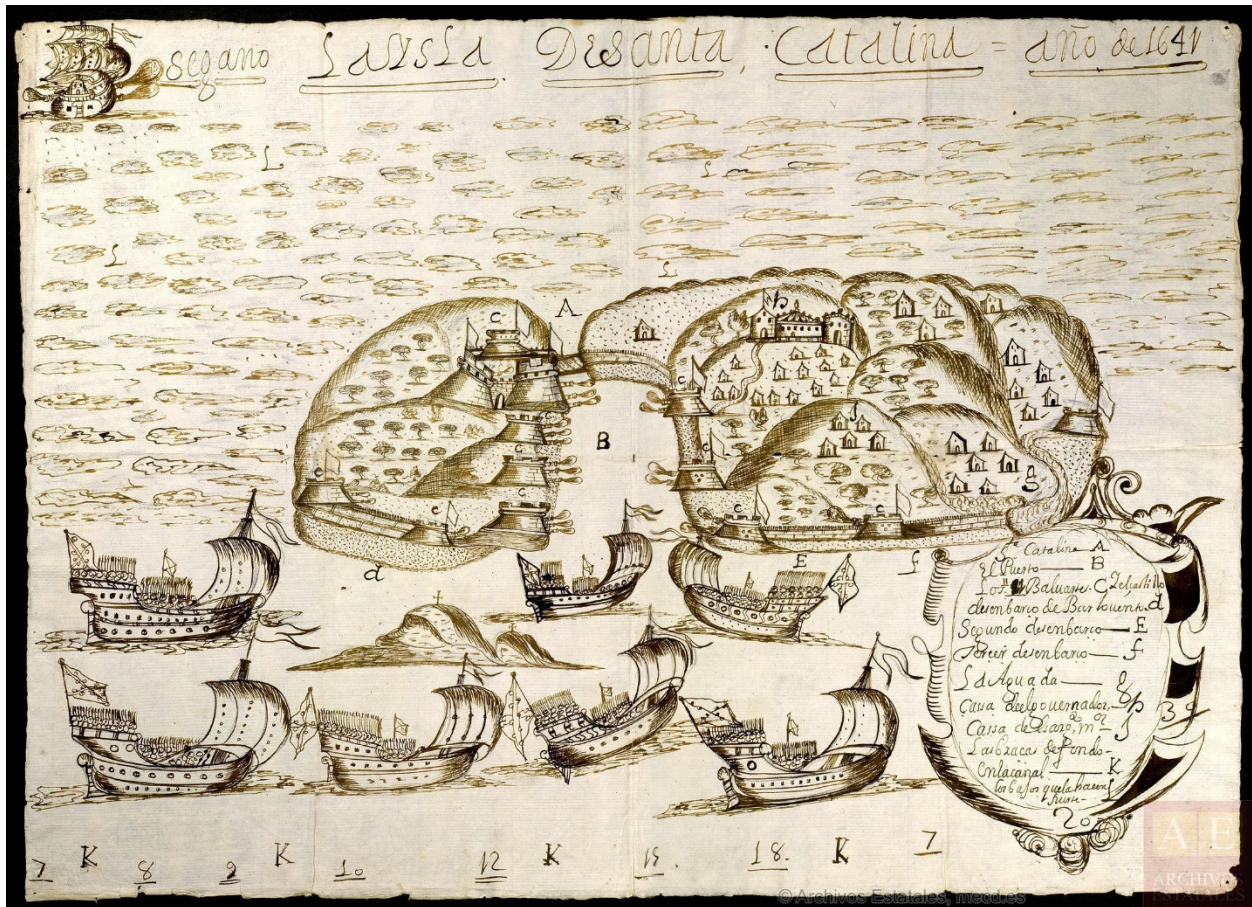 se gano La Ysla De Santa Catalina = año de 1641
L
L
L
L
A
C
h
g
C
B
C
C
C
C
C
C
C
C
J
g
d
E
f
Catalina — A
El Puerto — B
Los Baluartes. C
desenbarco de Barlovento. d
Segundo desenbarco — E
Tercer desenbarco — f
La Aguada — g
Cassa del governador,
39
Cassa
Las braças de fondo
en la canal — K
los bajos que la hacen
fuerte
20
7 K 8 9 K 10 12 K 15. 18. K 7
A E
ARCHIVOS
ESTATALES
© Archivos Estatales, mecd.es